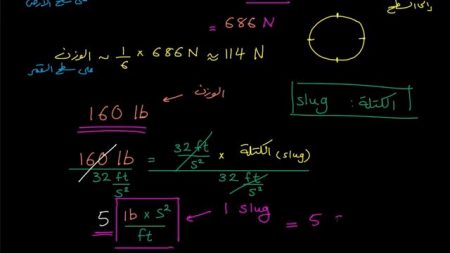 على سطح الأرض
= 686 N
رائد السطح
الوزن ~ 1/6 × 686 N ≈ 114 N
على سطح القمر
الوزن
160 lb
slug : الكتلة
160 lb / 32 ft/s² = 32 ft/s² × الكتلة (slug) / 32 ft/s²
5 lb × s² / ft
1 slug
= 5